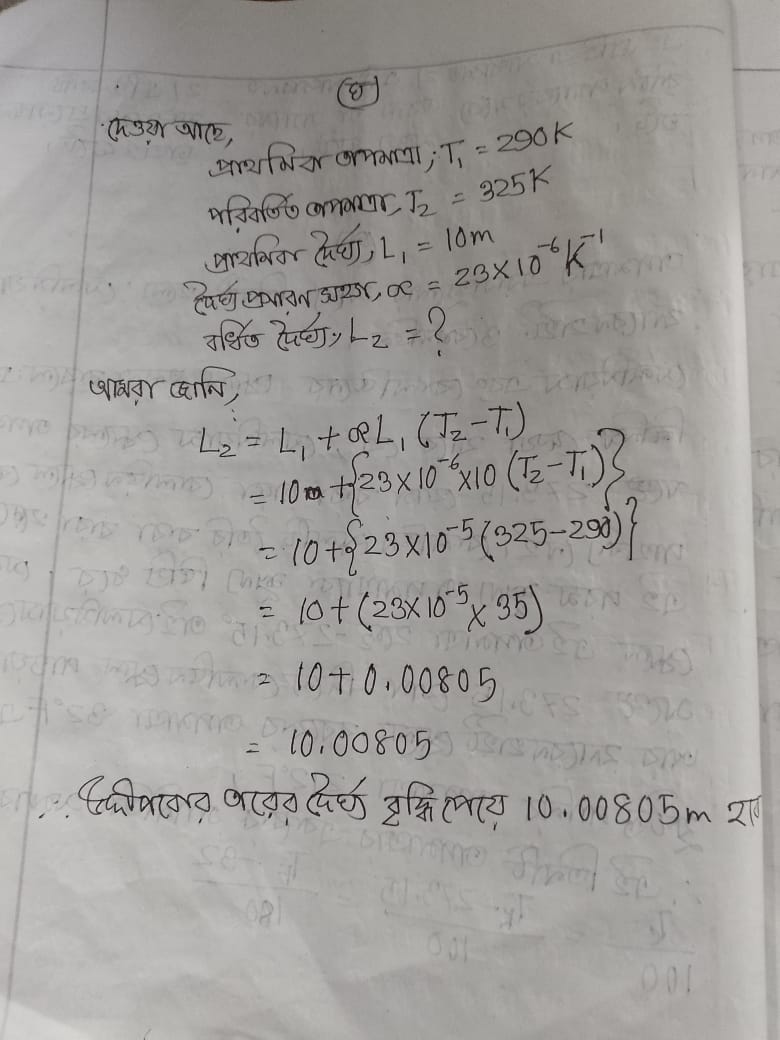 (ঘ)
দেওয়া আছে,
প্রাথমিক তাপমাত্রা, T₁ = 290K
পরিবর্তিত তাপমাত্রা, T₂ = 325K
প্রাথমিক দৈর্ঘ্য, L₁ = 10m
দৈর্ঘ্য প্রসারন সহগ, α = 23×10⁻⁶ K⁻¹
বর্ধিত দৈর্ঘ্য, L₂ = ?
আমরা জানি,
L₂ = L₁ + αL₁ (T₂-T₁)
= 10m + {23×10⁻⁶×10 (T₂-T₁)}
= 10+{23×10⁻⁵(325-290)}
= 10+(23×10⁻⁵×35)
= 10+0.00805
= 10.00805
∴ উদ্দীপকের তারের দৈর্ঘ্য বৃদ্ধি পেয়ে 10.00805m হবে